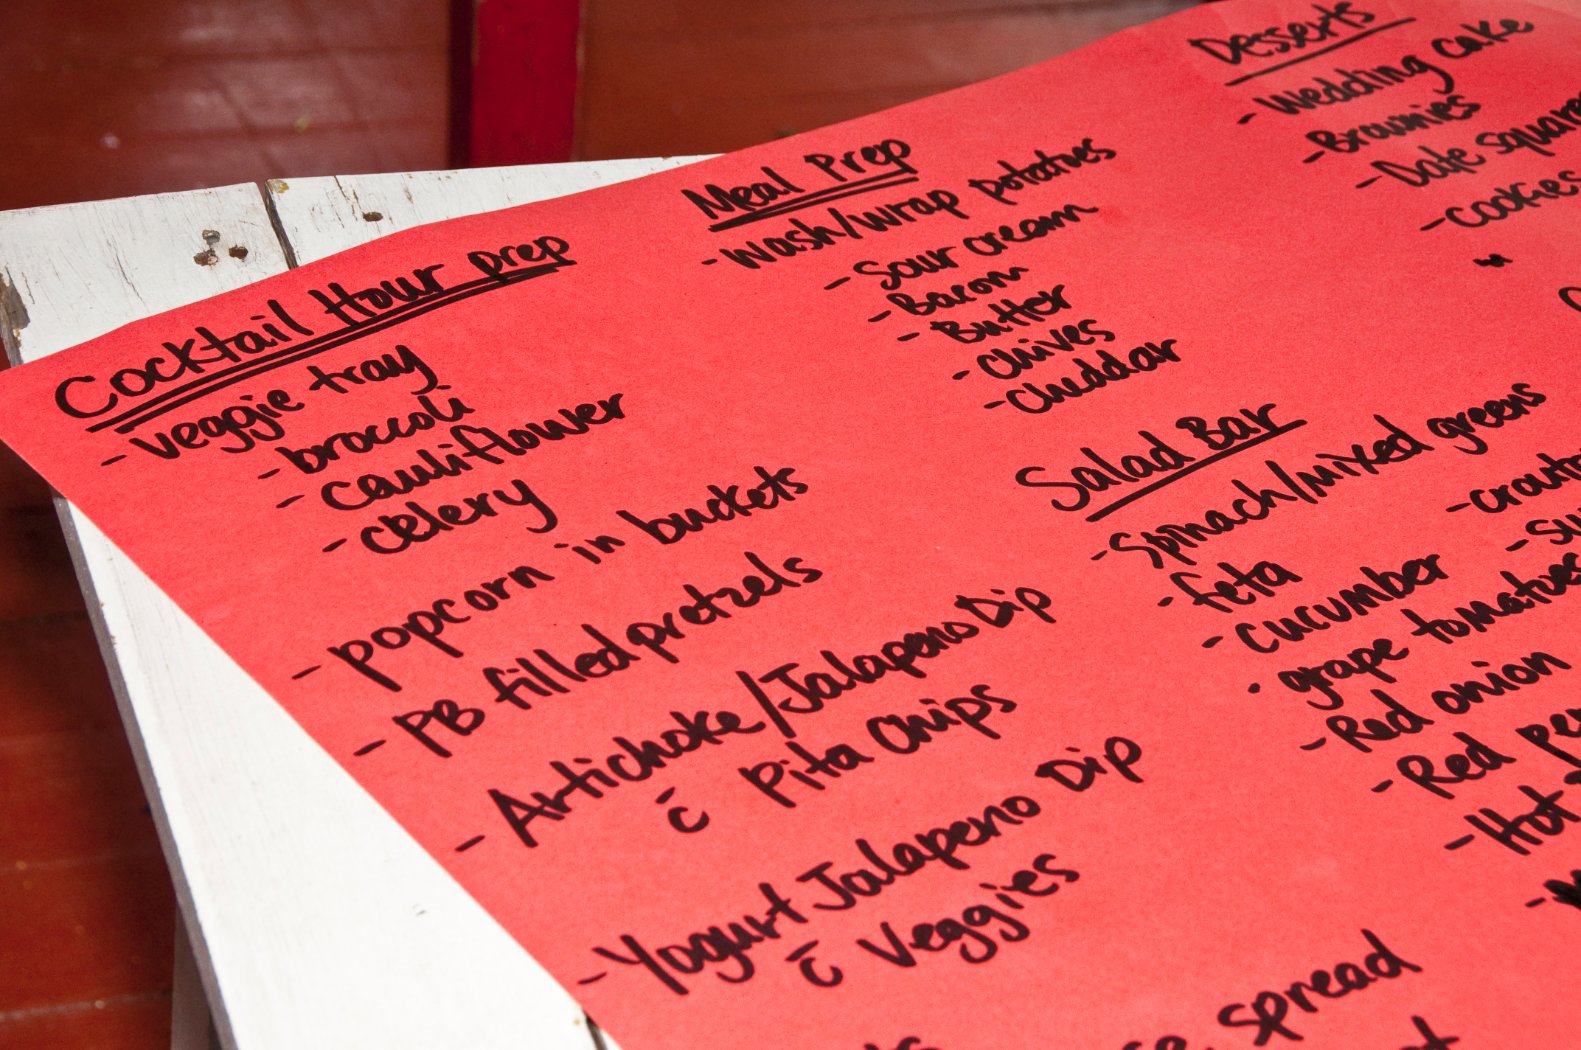 Cocktail Hour prep
- veggie tray
- broccoli
- cauliflower
- celery
- popcorn in buckets
- PB filled pretzels
- Artichoke/Jalapeno Dip
c̄ Pita Chips
- Yogurt Jalapeno Dip
c̄ Veggies
spread
Meal Prep
- Wash/wrap potatoes
- Sour cream
- Bacon
- Butter
- Chives
- Cheddar
Salad Bar
- Spinach/mixed greens
- feta
- cucumber
- grape tomatoes
- Red onion
- Red
- Hot
Desserts
- Wedding cake
- Brownies
- Date squares
- Cookies